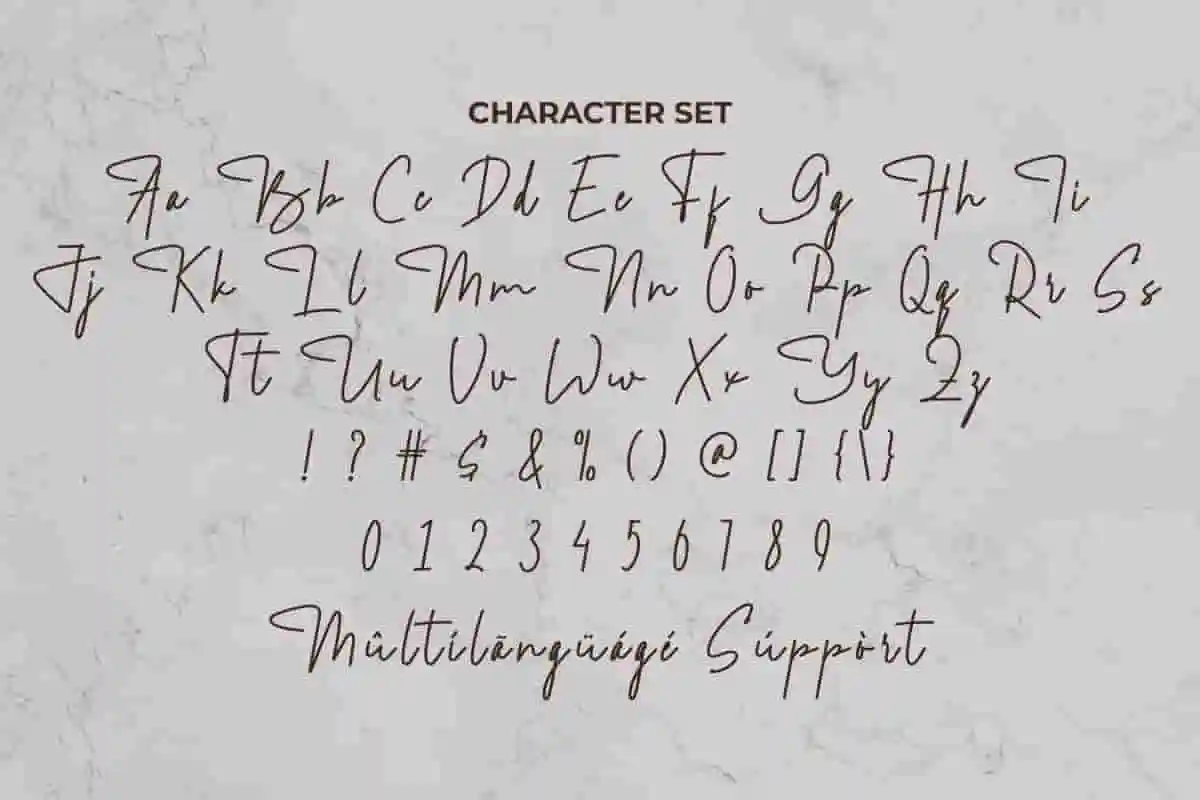 CHARACTER SET
Aa Bb Cc Dd Ee Ff Gg Hh Ii
Jj Kk Ll Mm Nn Oo Pp Qq Rr Ss
Tt Uu Vv Ww Xx Yy Zz
! ? # $ & % () @ [] {\}
0 1 2 3 4 5 6 7 8 9
Mûltílãngüágé Súppòrt